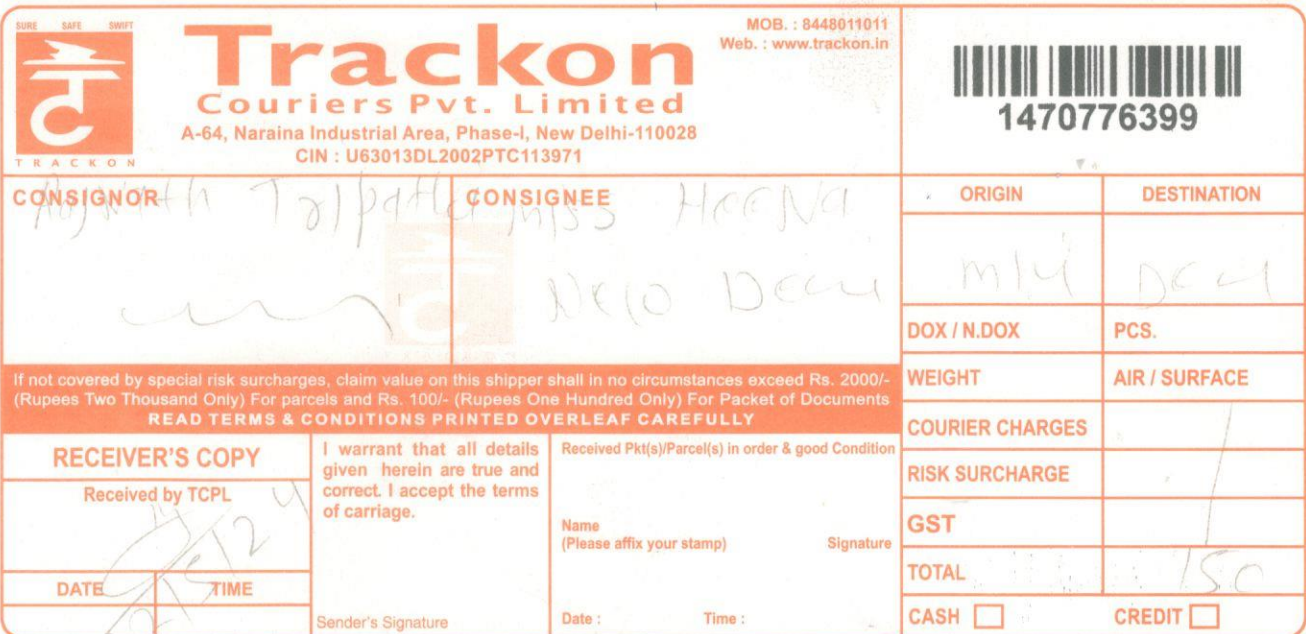 SURE SAFE SWIFT
TC
TRACKON
Trackon
Couriers Pvt. Limited
A-64, Naraina Industrial Area, Phase-I, New Delhi-110028
CIN : U63013DL2002PTC113971
MOB. : 8448011011
Web. : www.trackon.in
1470776399
CONSIGNOR
CONSIGNEE
Miss Heena
New
ORIGIN
DESTINATION
DOX / N.DOX
PCS.
WEIGHT
AIR / SURFACE
COURIER CHARGES
RISK SURCHARGE
GST
TOTAL
150
CASH
CREDIT
If not covered by special risk surcharges, claim value on this shipper shall in no circumstances exceed Rs. 2000/-
(Rupees Two Thousand Only) For parcels and Rs. 100/- (Rupees One Hundred Only) For Packet of Documents
READ TERMS & CONDITIONS PRINTED OVERLEAF CAREFULLY
RECEIVER'S COPY
Received by TCPL
DATE
TIME
I warrant that all details
given herein are true and
correct. I accept the terms
of carriage.
Sender's Signature
Received Pkt(s)/Parcel(s) in order & good Condition
Name
(Please affix your stamp)
Signature
Date :
Time :